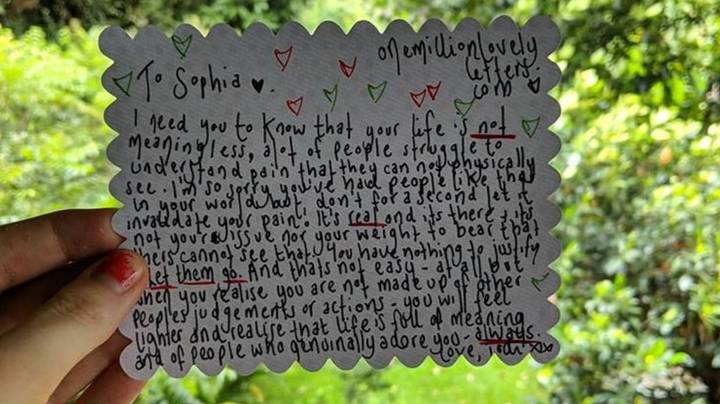 onemillionlovely
letters.
com
To Sophia
I need you to know that your life is not
meaningless, alot of people struggle to
understand pain that they can not physically
see. I'm so sorry you've had people like that
in your world, but, don't for a second let it
invalidate your pain. It's real and its there, its
not your issue nor your weight to bear that
others cannot see that. You have nothing to justify
let them go. And thats not easy - at all, but
when you realise you are not made up of other
peoples judgements or actions - you will feel
lighter and realise that life is full of meaning
and of people who genuinally adore you - always.
Love,